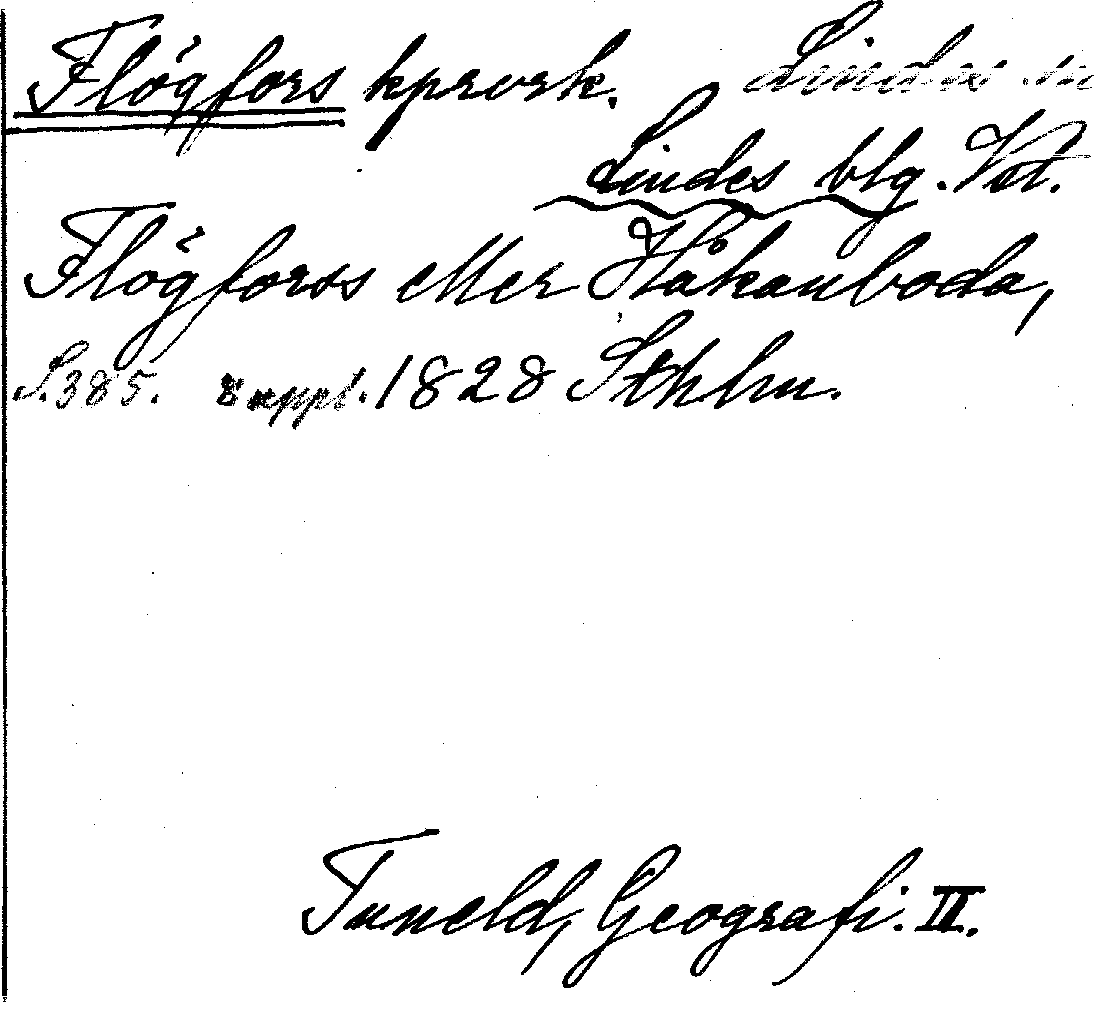 Flögfors kprverk. Lindes sn
Lindes blg. Vstm.
Flögforss eller Håkanboda,
S. 385. 8 uppl. 1828 Sthlm.
Tuneld, Geografi. II.